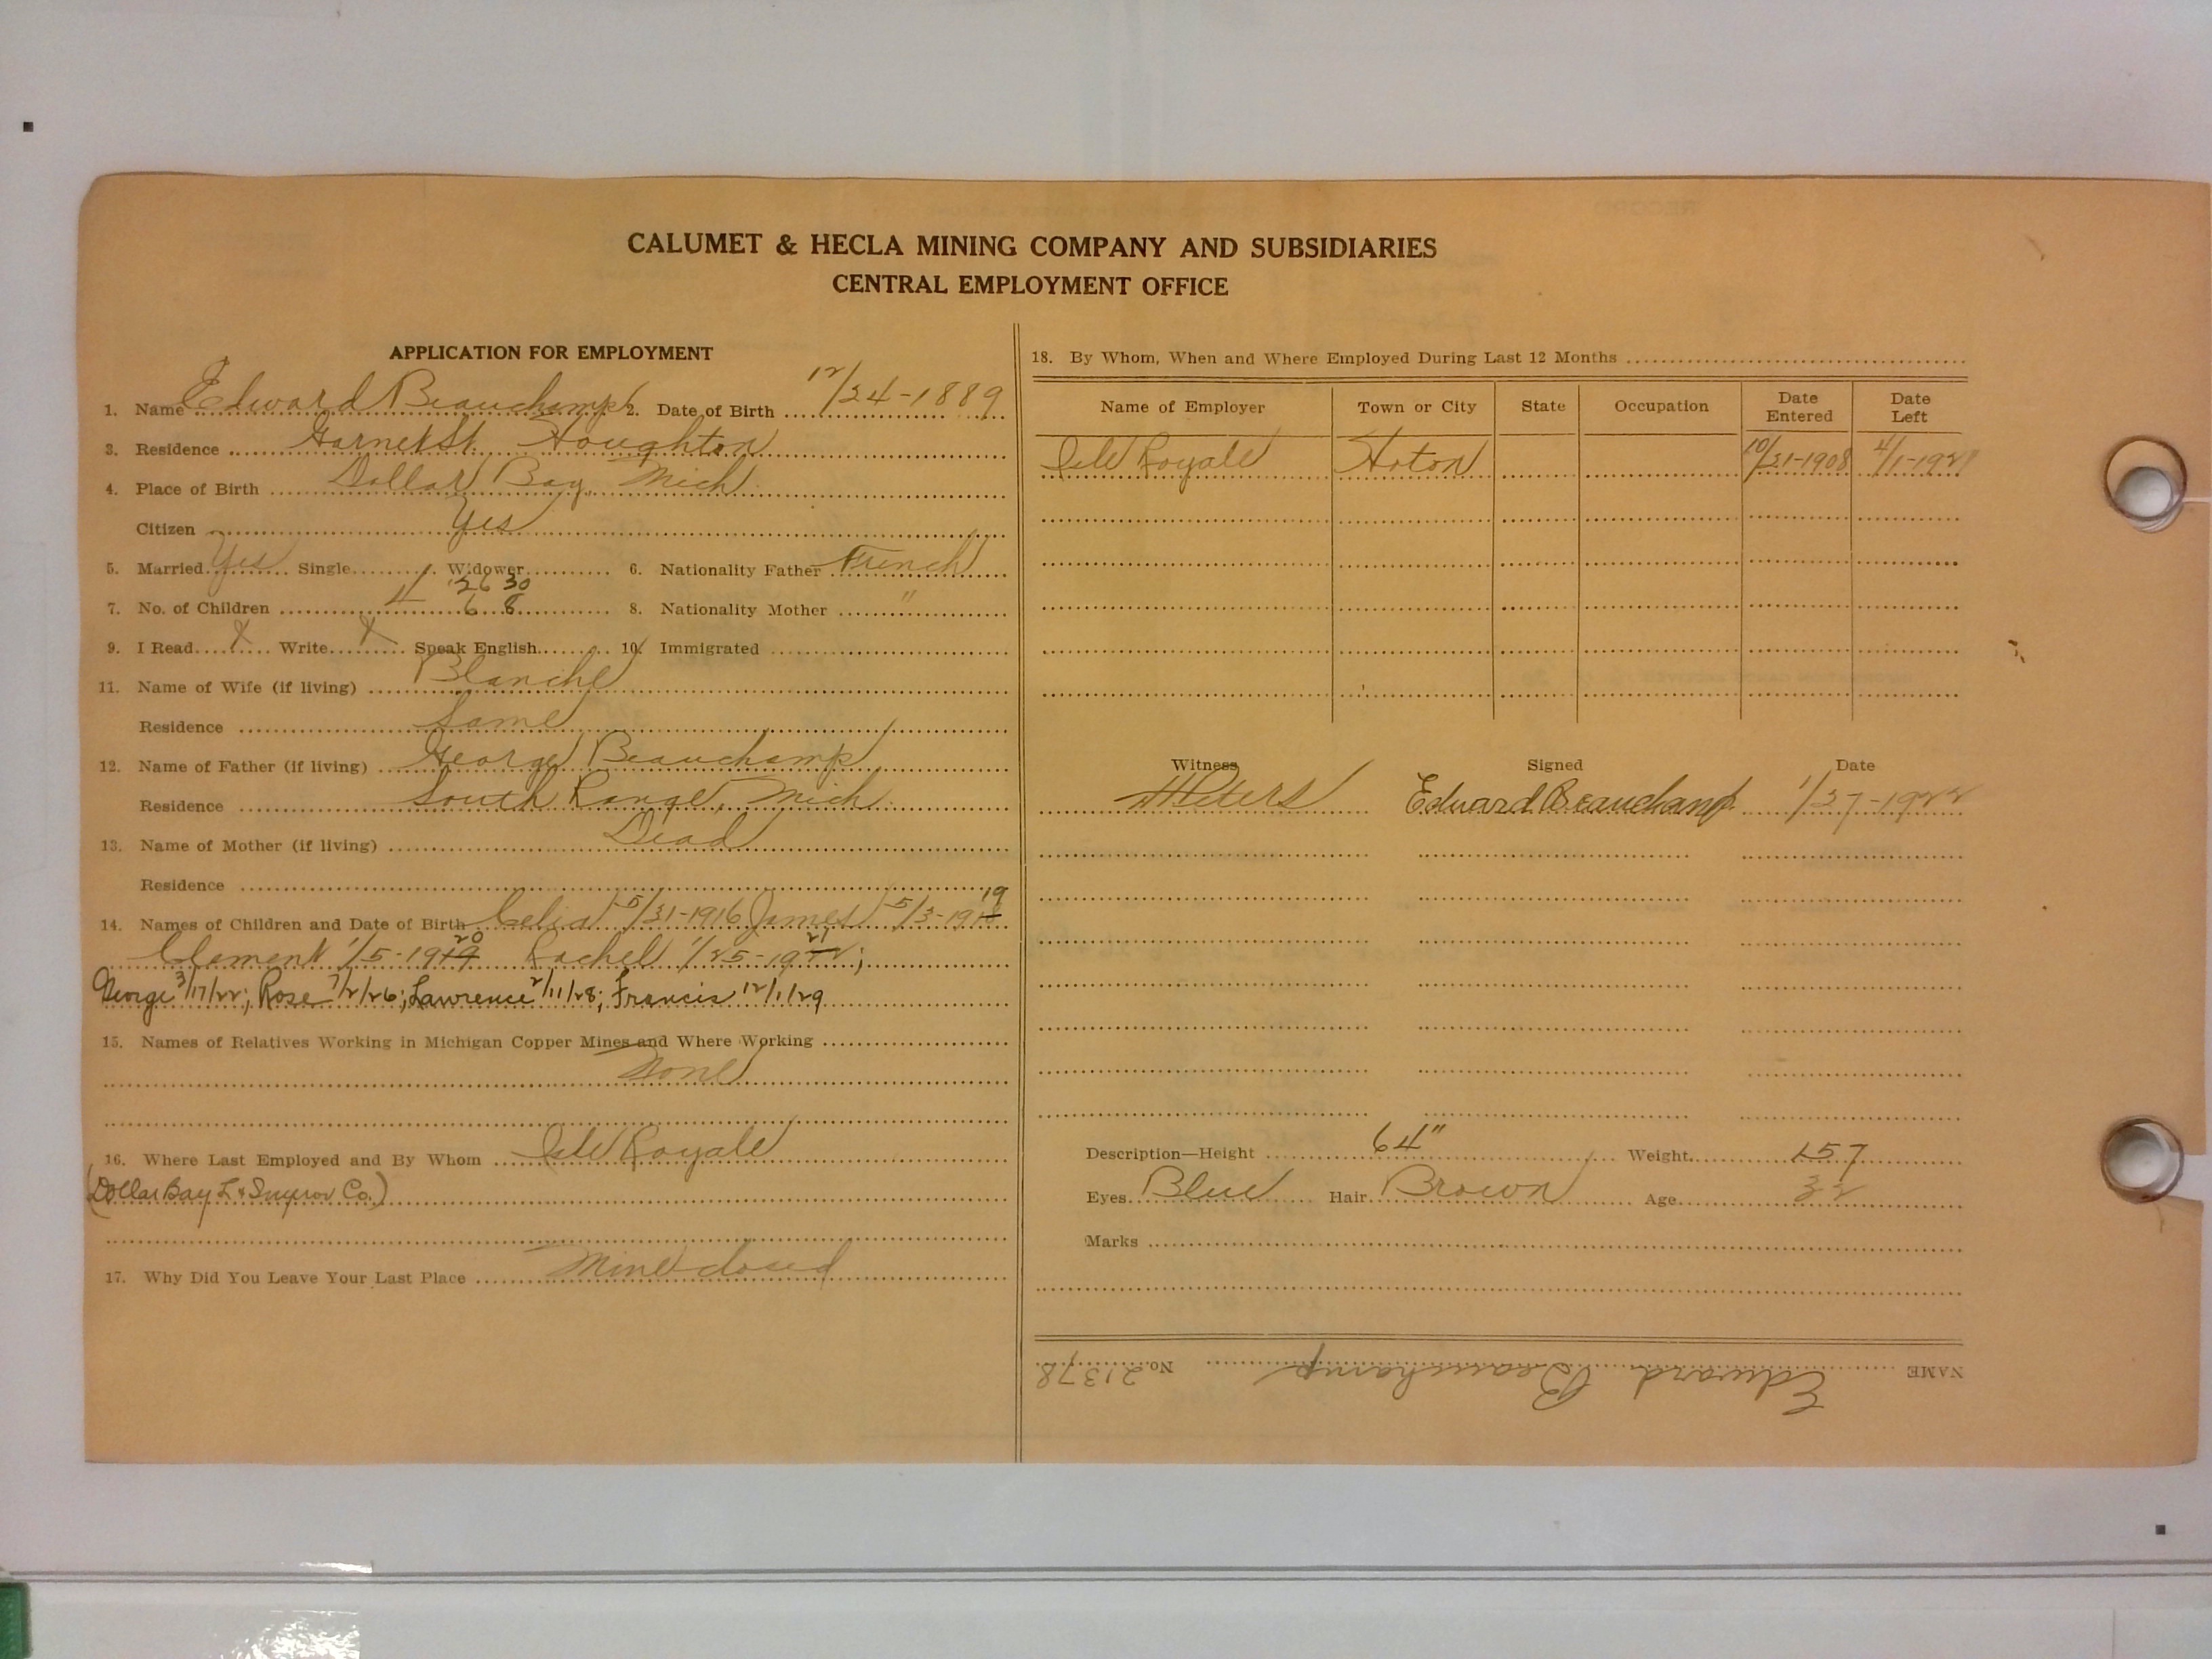 CALUMET & HECLA MINING COMPANY AND SUBSIDIARIES
CENTRAL EMPLOYMENT OFFICE
APPLICATION FOR EMPLOYMENT
1. Name Edward Beauchamp 2. Date of Birth 12/24-1889
3. Residence Garnet St. Houghton
4. Place of Birth Dollar Bay, Mich
Citizen Yes
5. Married Yes Single Widower 6. Nationality Father French
'26 30
7. No. of Children 4 6 8 8. Nationality Mother "
9. I Read X Write X Speak English 10. Immigrated
11. Name of Wife (if living) Blanche
Residence Same
12. Name of Father (if living) George Beauchamp
Residence South Range, Mich
13. Name of Mother (if living) Dead
Residence
14. Names of Children and Date of Birth Celia 5/31-1916 James 5/3-1919
Clement 1/5-1920 Rachel 1/25-1921;
George 3/17/22; Rose 7/2/26; Lawrence 2/11/28; Francis 12/1/29
15. Names of Relatives Working in Michigan Copper Mines and Where Working
None
16. Where Last Employed and By Whom Isle Royale
(Dollar Bay L & Improv Co.)
17. Why Did You Leave Your Last Place Mine closed
18. By Whom, When and Where Employed During Last 12 Months
Name of Employer Town or City State Occupation Date Entered Date Left
Isle Royale Hoton 10/31-1908 4/1-1921
Witness Signed Date
Peters Edward Beauchamp 1/27-1922
Description—Height 64" Weight 157
Eyes Blue Hair Brown Age 32
Marks
NAME Edward Beauchamp No. 21378